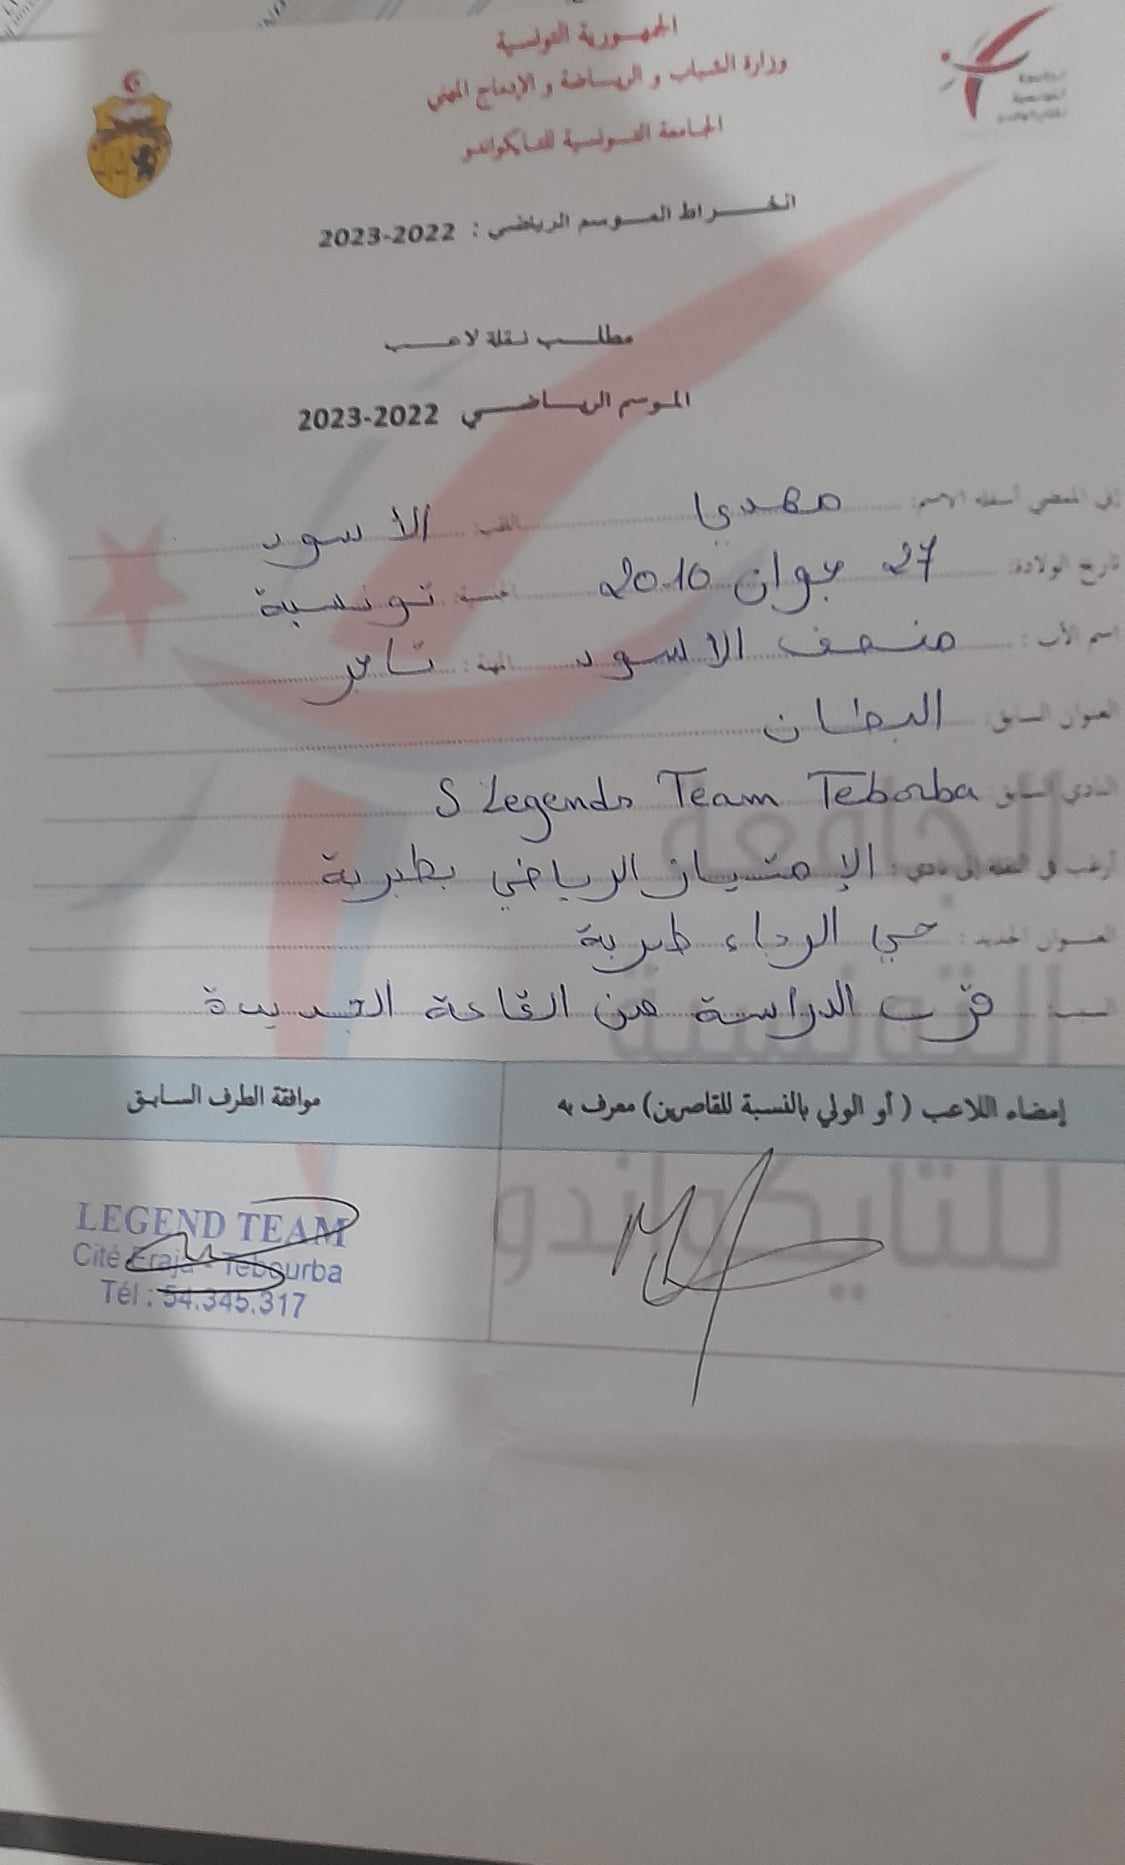 الجمهورية التونسية
وزارة الشباب و الرياضة و الإدماج المهني
الجامعة التونسية للتايكواندو
انخراط الموسم الرياضي : 2022-2023
مطلب نقلة لاعب
الموسم الرياضي 2022-2023
إني الممضي أسفله الاسم: مهدي اللقب: الاسود
تاريخ الولادة: 27 جوان 2010 الجنسية: تونسية
اسم الأب: منصف الاسود المهنة: تاجر
العنوان السابق: البطان
النادي السابق S Legends Team Teborba
أرغب في النقلة إلى نادي: الإمتياز الرياضي بطبربة
العنوان الجديد: حي الرجاء طبربة
قرب الدراسة من القاعة الجديدة
إمضاء اللاعب (أو الولي بالنسبة للقاصرين) معرف به
موافقة الطرف السابق
LEGEND TEAM
Cité Eraja - Tebourba
Tél : 54.345.317
الجامعة
التونسية
للتايكواندو